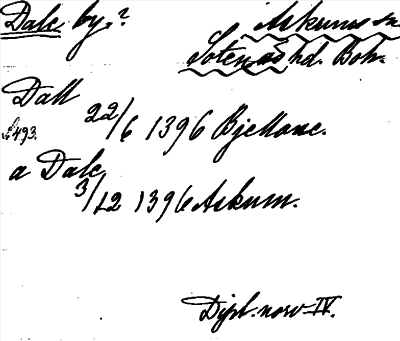 Dale by.?
Askums sn
Sotenäs hd. Boh.
Dall
22/6 1396 Bjellane.
s. 493.
a Dale
3/12 1396 Askum.
Dipl. norv IV.